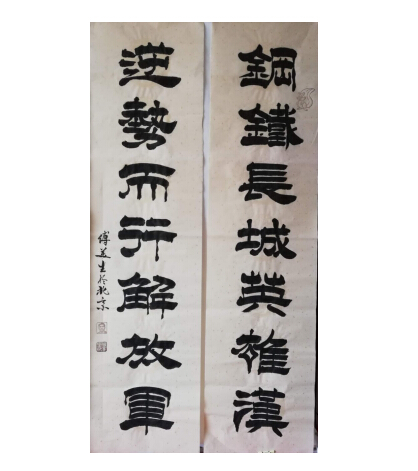 鋼鐵長城英雄漢
逆勢而行解放軍
傅益生於北京